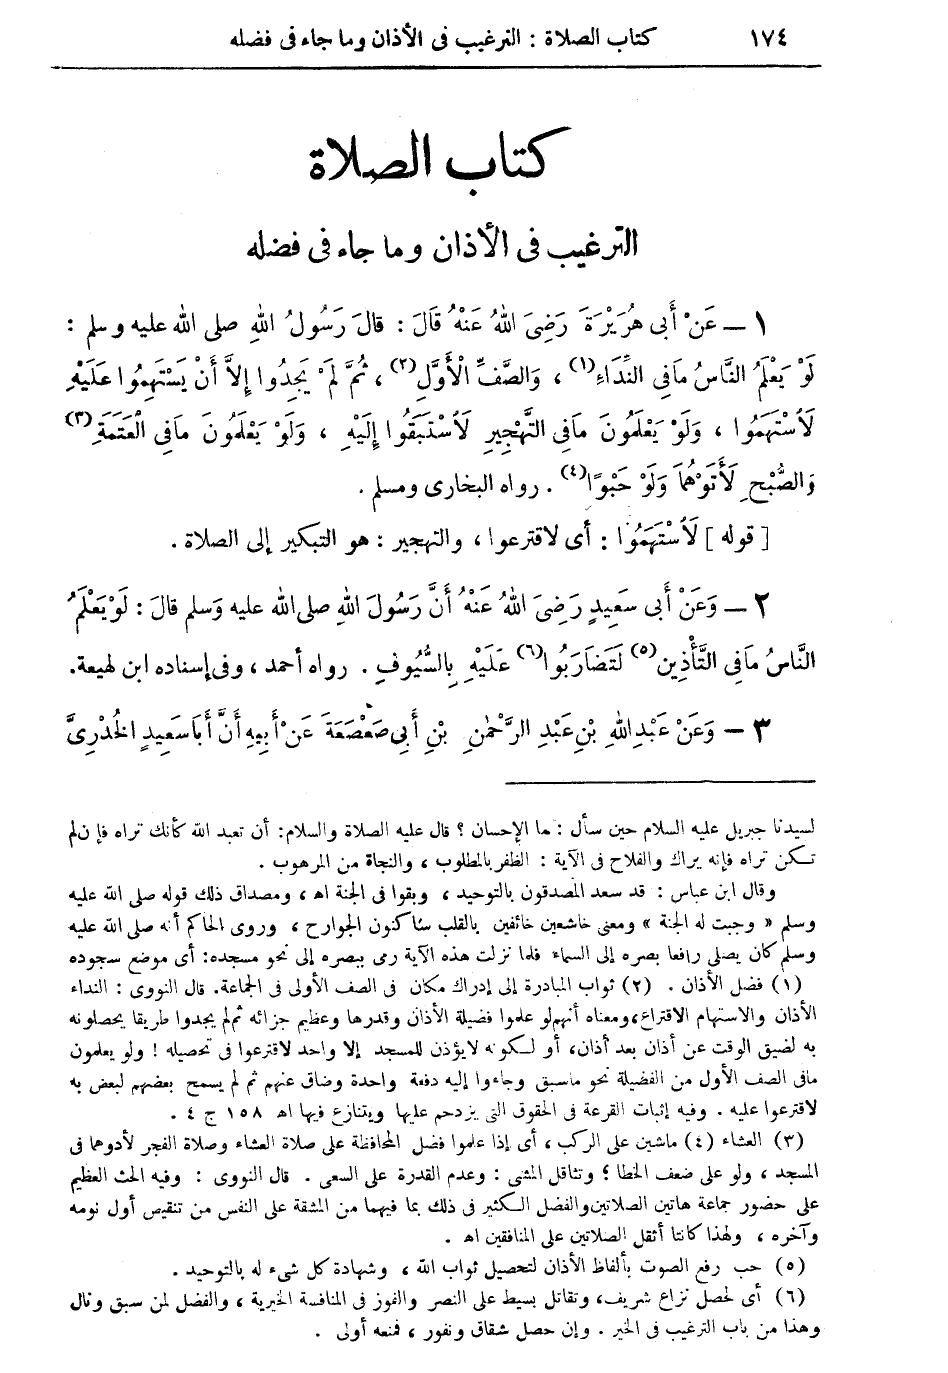 ١٧٤ كتاب الصلاة : الترغيب فى الأذان وما جاء فى فضله
كتاب الصلاة
الترغيب فى الأذان وما جاء فى فضله
١ – عَنْ أَبى هُرَيْرَةَ رَضِىَ اللهُ عَنْهُ قَالَ : قالَ رَسُولُ اللهِ صلى الله عليه وسلم :
لَوْ يَعْلَمُ النَّاسُ مَافِى النِّدَاءِ(١) ، وَالصَّفِّ الْأَوَّلِ(٢) ، ثُمَّ لَمْ يَجِدُوا إِلاَّ أَنْ يَسْتَهِمُوا عَلَيْهِ
لَأَسْتَهَمُوا ، وَلَوْ يَعْلَمُونَ مَافِى التَّهْجِيرِ لَأَسْتَبَقُوا إِلَيْهِ ، وَلَوْ يَعْلَمُونَ مَافِى الْعَتَمَةِ(٣)
وَالصُّبْحِ لَأَتَوْهُمَا وَلَوْ حَبْوًا(٤) . رواه البخارى ومسلم .
[ قوله ] لَأَسْتَهَمُوا : أى لاقترعوا ، والتهجير : هو التبكير إلى الصلاة .
٢ – وَعَنْ أَبى سَعِيدٍ رَضِىَ اللهُ عَنْهُ أَنَّ رَسُولَ اللهِ صلى الله عليه وَسلم قالَ : لَوْ يَعْلَمُ
النَّاسُ مَافِى التَّأْذِينِ(٥) لَتَضَارَبُوا(٦) عَلَيْهِ بِالسُّيُوفِ . رواه أحمد ، وفى إسناده ابن لهيعة.
٣ – وَعَنْ عَبْدِ اللهِ بْنِ عَبْدِ الرَّحْمٰنِ بْنِ أَبِى صَعْصَعَةَ عَنْ أَبِيهِ أَنَّ أَبَا سَعِيدٍ الْخُدْرِىَّ
لسيدنا جبريل عليه السلام حين سأل : ما الإحسان ؟ قال عليه الصلاة والسلام: أن تعبد الله كأنك تراه فإن لم
تكن تراه فإنه يراك والفلاح فى الآية : الظفر بالمطلوب ، والنجاة من المرهوب .
وقال ابن عباس : قد سعد المصدقون بالتوحيد ، وبقوا فى الجنة اه ، ومصداق ذلك قوله صلى الله عليه
وسلم « وجبت له الجنة » ومعنى خاشعين خائفين بالقلب ساكنون الجوارح ، وروى الحاكم أنه صلى الله عليه
وسلم كان يصلى رافعا بصره إلى السماء فلما نزلت هذه الآية رمى ببصره إلى نحو مسجده: أى موضع سجوده
(١) فضل الأذان . (٢) ثواب المبادرة إلى إدراك مكان فى الصف الأولى فى الجماعة. قال النووى : النداء
الأذان والاستهام الاقتراع،ومعناه أنهم لو علموا فضيلة الأذان وقدرها وعظيم جزائه ثم لم يجدوا طريقا يحصلونه
به لضيق الوقت عن أذان بعد أذان، أو لكونه لايؤذن للمسجد إلا واحد لاقترعوا فى تحصيله ! ولو يعلمون
مافى الصف الأول من الفضيلة نحو ماسبق وجاءوا إليه دفعة واحدة وضاق عنهم ثم لم يسمح بعضهم لبعض به
لاقترعوا عليه . وفيه إثبات القرعة فى الحقوق التى يزدحم عليها ويتنازع فيها اه ١٥٨ ج ٤ .
(٣) العشاء (٤) ماشين على الركب ، أى إذا علموا فضل المحافظة على صلاة العشاء وصلاة الفجر لأدوهما فى
المسجد ، ولو على ضعف الخطا ؛ وتثاقل المشى : وعدم القدرة على السعى . قال النووى : وفيه الحث العظيم
على حضور جماعة هاتين الصلاتين والفضل الكثير فى ذلك بما فيهما من المشقة على النفس من تنقيص أول نومه
وآخره ، ولهذا كانتا أثقل الصلاتين على المنافقين اه .
(٥) حب رفع الصوت بألفاظ الأذان لتحصيل ثواب الله ، وشهادة كل شىء له بالتوحيد .
(٦) أى لحصل نزاع شريف، وتقاتل بسيط على النصر والفوز فى المنافسة الخيرية ، والفضل لمن سبق ونال
وهذا من باب الترغيب فى الخير . وإن حصل شقاق ونفور ، فمنعه أولى .